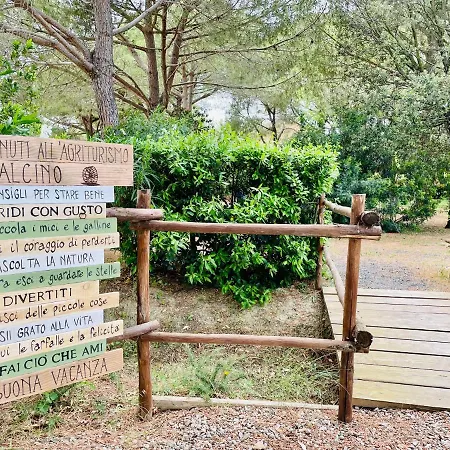 NUTI ALL'AGRITURISMO
ALCINO
NSIGLI PER STARE BENE
RIDI CON GUSTO
ccola i mici e le galline
il coraggio di perdert
SCOLTA LA NATURA
eso a guardare le stelle
DIVERTITI
sci delle piccole cose
SII GRATO ALLA VITA
ui le farfalle e perditi
FAI CIÒ CHE AMI
BUONA VACANZA